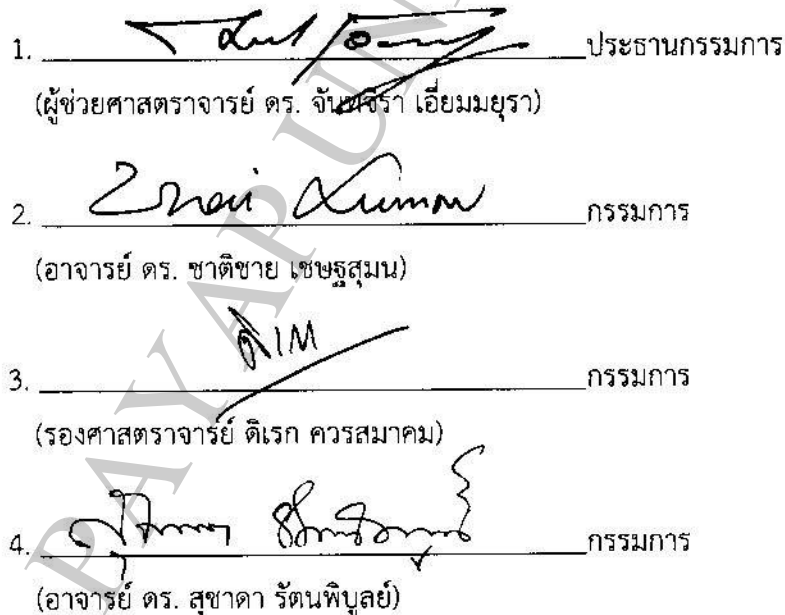 1. ประธานกรรมการ
(ผู้ช่วยศาสตราจารย์ ดร. จันทจิรา เอี่ยมมยุรา)
2. กรรมการ
(อาจารย์ ดร. ชาติชาย เชษฐสุมน)
3. กรรมการ
(รองศาสตราจารย์ ดิเรก ควรสมาคม)
4. กรรมการ
(อาจารย์ ดร. สุชาดา รัตนพิบูลย์)
PAYAP UN